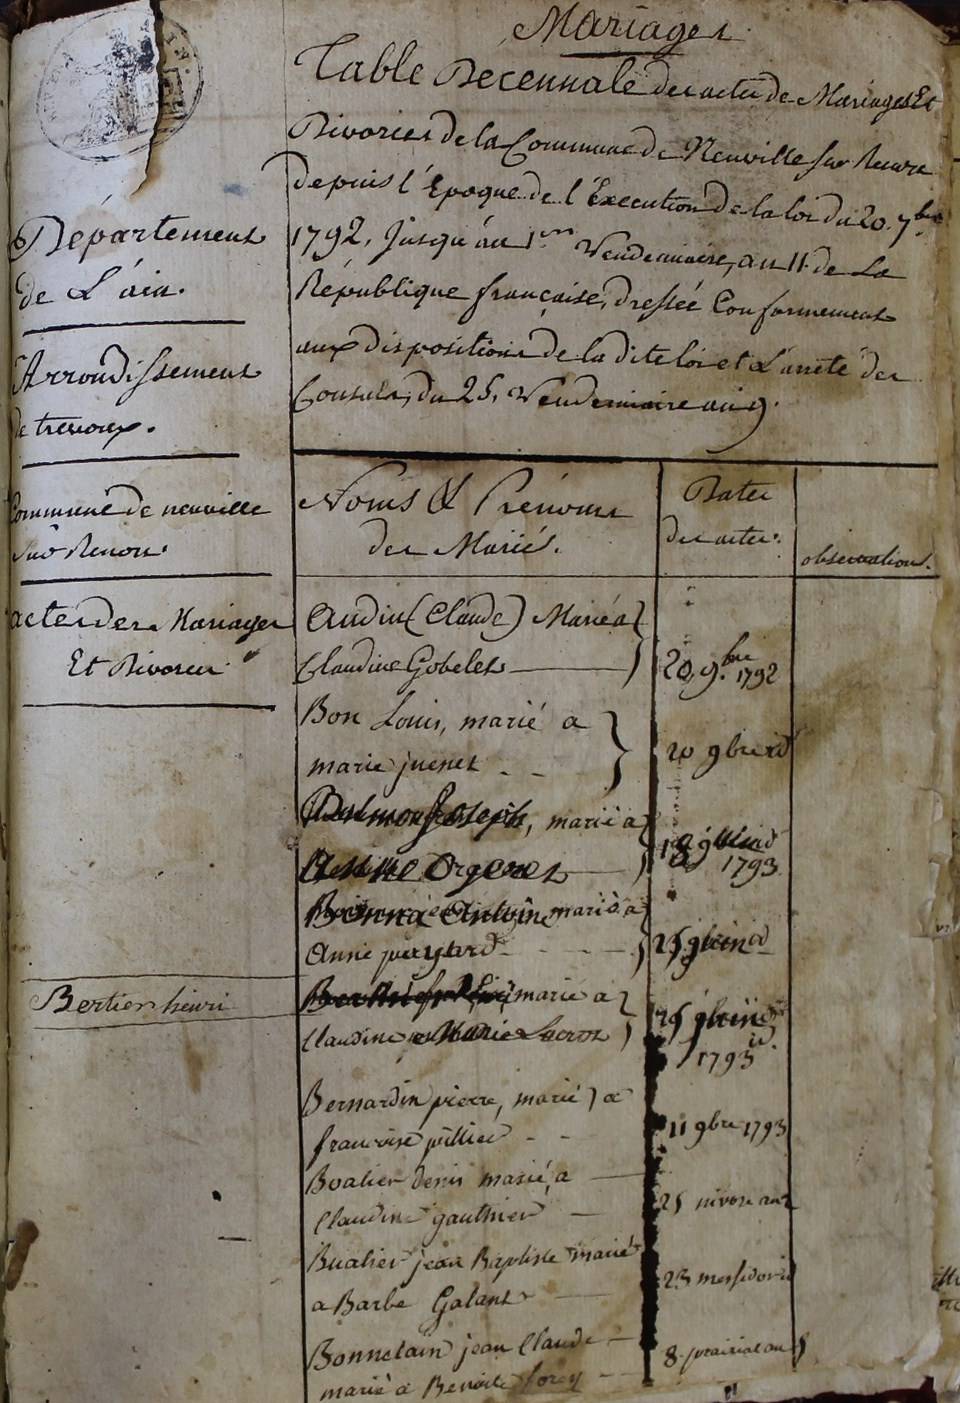 Mariages
Table Décennale des actes de Mariages Et
Divorces de la Commune de Neuville sur Renon
depuis l'Epoque de l'Execution de la loi du 20. 7bre
1792, Jusqu'au 1er Vendemiaire, an 11 de La
République française, dressée Conformement
aux dispositions de la dite loi et L'arrêté des
Consuls, du 25, Vendemiaire an 9.
Département
de L'ain.
Arrondissement
de trevoux.
Commune de neuville
sur Renon.
actes des Mariages
Et Divorces
Noms & Prénoms
des Mariés.
Dates
des actes.
observations.
Audin (Claude) Marié a
Claudine Gobelet
20, 9.bre 1792
Bon Louis, marié a
marie juenet
20 9bre id
Joseph, marié a
18 1793
Antoine marié a
Anne
25 id
Bertier henri
marié a
Claudine Marie Lacroix
25 id
1793
Bernardin pierre, marié a
francoise
11 9bre 1793
Boalier denis marié a
Claudine gauthier
25 nivose an 2
Bualier jean Baptiste marié
a Barbe Galant
23 messidor id
Bonnetain jean Claude
marié a Benoite
8 prairial an